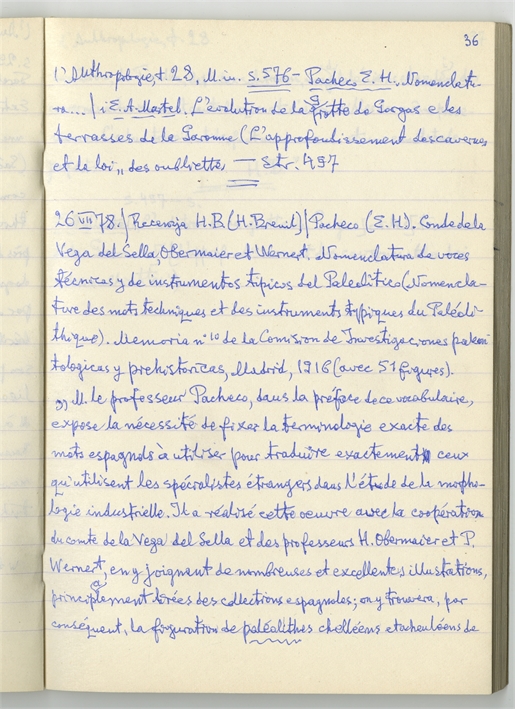 36
L'Anthropologie, t. 28, M. in. s. 576 - Pacheco E. H. Nomenclatu-
ra... / i E. A. Martel. L'évolution de la grotte de Gargas e les
terrasses de la Garonne (L'approfondissement des cavernes
et la loi „ des oubliette — str. 497
26 VII 78. / Recenzja H. B. (H. Breuil) / Pacheco (E. H). Conde de la
Vega del Sella, Obermaier et Wernert, Nomenclatura de voces
técnicas y de instrumentos tipicos del Paleolitico (Nomencla-
ture des mots techniques et des instruments typiques du Paléoli-
thique). Memoria n° 10 de la Comision de Investigaciones paleon
tologicas y prehistoricas, Madrid, 1916 (avec 51 figures).
„ M. le professeur Pacheco, dans la préface de ce vocabulaire,
expose la nécessité de fixer la terminologie exacte des
mots espagnols à utiliser pour traduire exactement ceux
qu'utilisent les spécialistes étrangers dans l'étude de la morpho-
logie industrielle. Il a réalisé cette oeuvre avec la coopération
du comte de la Vega del Sella et des professeurs H. Obermaier et P.
Wernert, en y joignant de nombreuses et excellentes illustrations,
principalement tirées des collections espagnoles; on y trouvera, par
conséquent, la figuration de paléolithes chelléens et acheuléens de